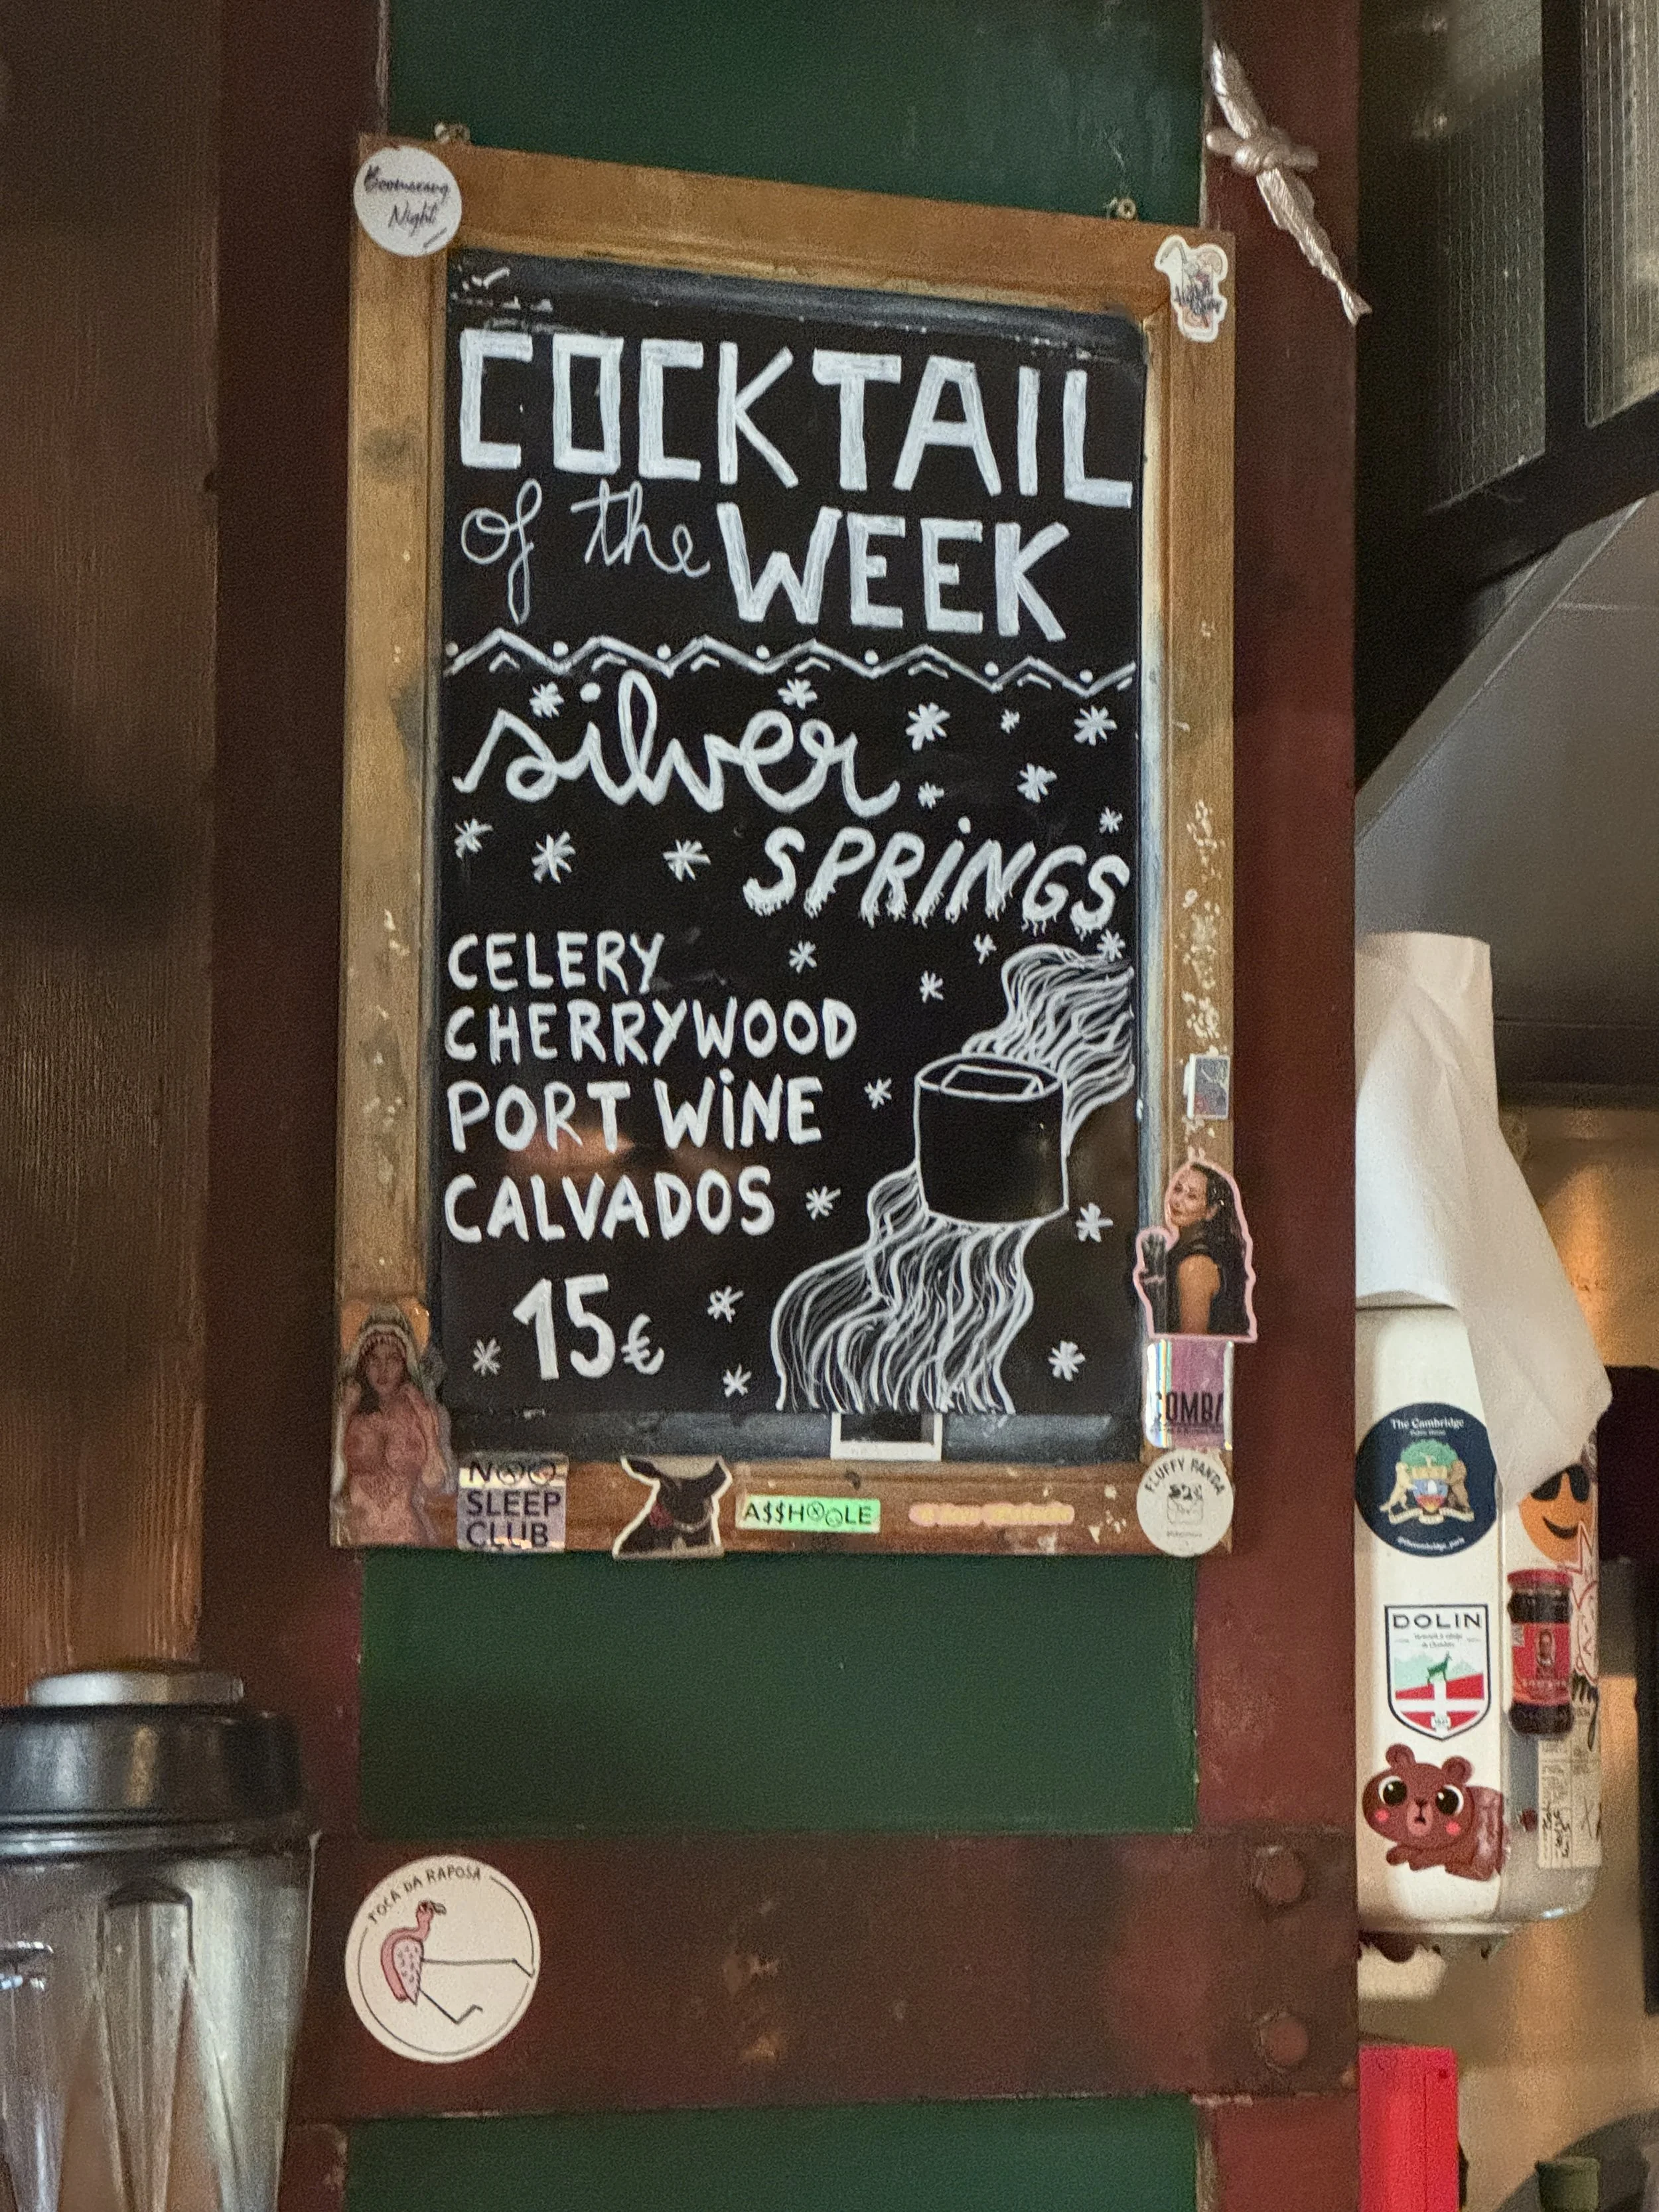 Boomerang
Night
COCKTAIL
of the WEEK
silver
SPRiNGS
CELERY
CHERRYWOOD
PORT WiNE
CALVADOS
15€
COMBA
NOO
SLEEP
CLUB
A$$HOOLE
FLUFFY PANDA
The Cambridge
Public House
@thecambridge_paris
DOLIN
TOCA DA RAPOSA